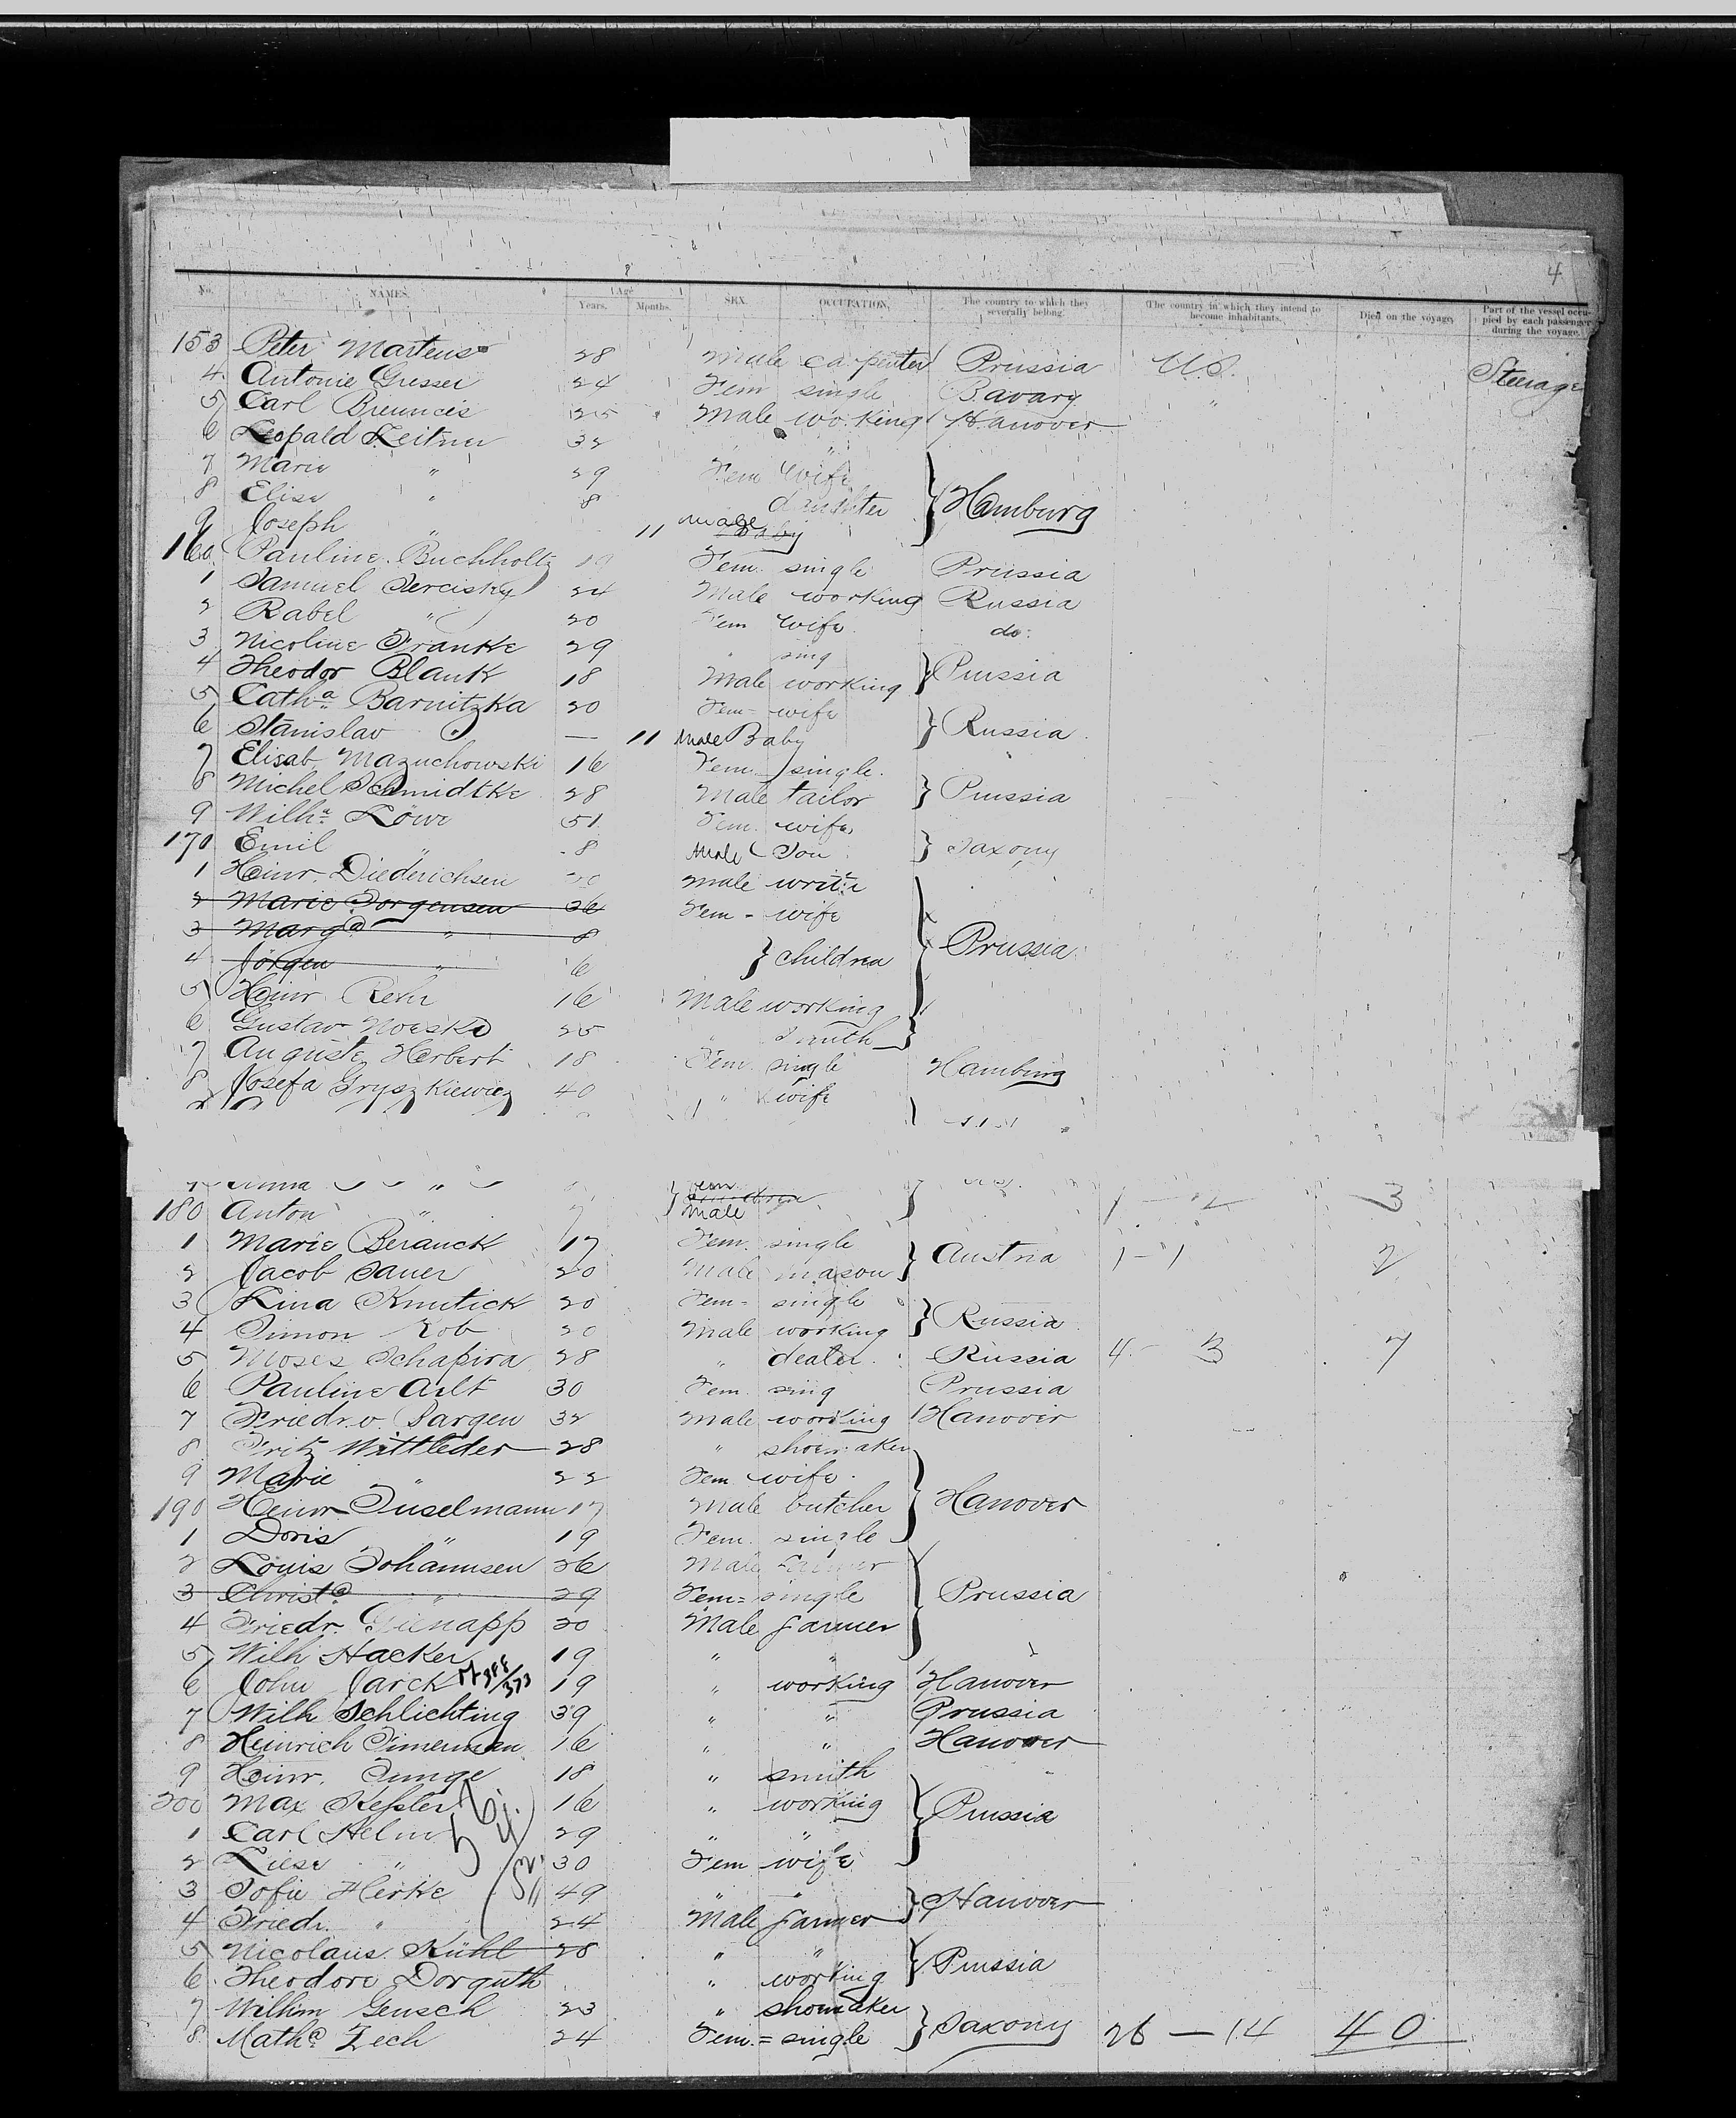 4
No. NAMES. Age Years. Months. SEX. OCCUPATION. The country to which they severally belong. The country in which they intend to become inhabitants. Died on the voyage. Part of the vessel occupied by each passenger during the voyage.
153 Peter Martens 28 Male carpenter Prussia U.S. Steerage
4 Antonie Gresser 24 Fem single Bavary "
5 Carl 25 Male working Hanover
6 Leopald Leitner 32 "
7 Marie " 29 Fem Wife
8 Elise " 8 daughter Hamburg
9 Joseph " 11 Male Baby
160 Pauline Buchholtz 19 Fem. single Prussia
1 Samuel 24 Male working Russia
2 Rabel " 20 Fem Wife do:
3 Nicoline Franke 29 " sing
4 Theodor Blank 18 Male working Prussia
5 Catha Barnitzka 20 Fem- wife
6 Stanislav " — 11 Male Baby Russia
7 Elisab. Mazuchowski 16 Fem. single.
8 Michel Schmidtke 28 Male tailor Prussia
9 Wilha Löwe 51 Fem. wife
170 Emil " 8 Male Son Saxony
1 Heinr. Diederichsen 20 Male
2 Marie Jorgensen 36 Fem- wife
3 Marga " 8
4 Jörgen " 6 children Prussia
5 Heinr. 16 Male working
6 Gustav Noeske 25 " smith
7 Auguste Herbert 18 Fem. single Hamburg
8 Josefa Gryszkiewicz 40 " wife
"
Fem
180 Anton " Male 1 2 3
1 Marie Beranck 17 Fem. single
2 Jacob Sauer 20 Male mason Austria 1-1 2
3 Lina Knutick 20 Fem- single
4 Simon Kob 20 Male working Russia
5 Moses Schapira 28 " dealer. Russia 4- 3 7
6 Pauline Arlt 30 Fem. sing Prussia
7 Friedr. v. Bargen 32 Male working Hanover
8 Fritz Wittleder 28 " shoemaker
9 Marie " 22 Fem wife.
190 Heinr Inselmann 17 Male butcher Hanover
1 Doris " 19 Fem. single
2 Louis Johannsen 26 Male farmer
3 Christa " 29 Fem= single Prussia
4 Friedr. Gienapp 20 Male farmer
5 Wilh Hacker 19 " "
6 John Jarck 19 " working Hanover
7 Wilh Schlichting 39 " " Prussia
8 Heinrich Timerman 16 " " Hanover
9 Heinr. Junge 18 " smith
200 Max Keßler 16 " working Prussia
1 Carl Helm 29 " "
2 Liese " 30 Fem wife
3 Sofie Herke 49 " " Hanover
4 Friedr. " 24 Male farmer
5 Nicolaus Kühl 28 " "
6 Theodore Dorguth " working Prussia
7 Wilhm Gensch 23 " shomaker
8 Matha Zech 24 Fem.= single Saxony 26 — 14 40